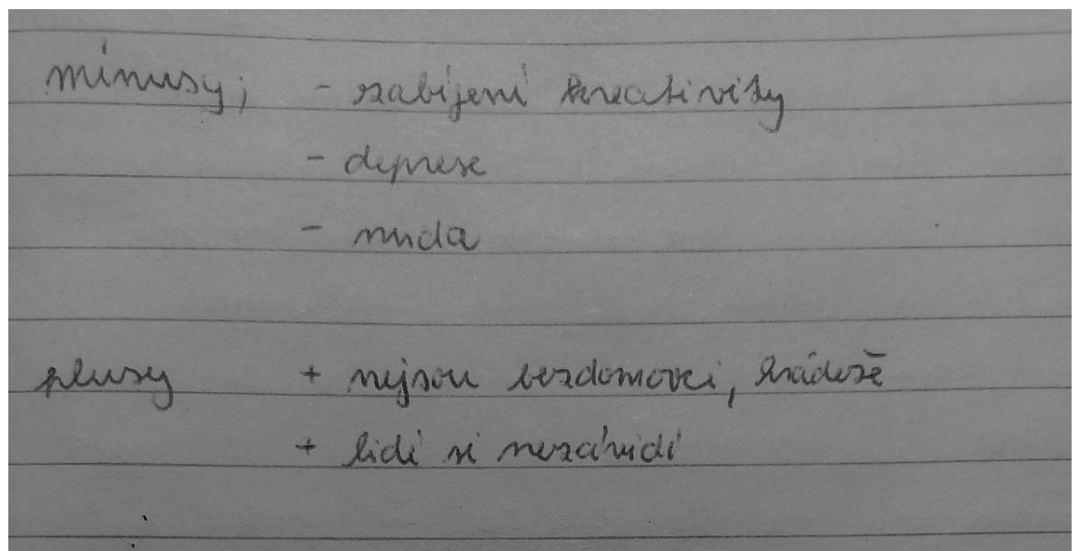 mínusy; - zabíjení kreativity
- deprese
- nuda
plusy + nejsou bezdomovci, krádeže
+ lidí si nezávidí